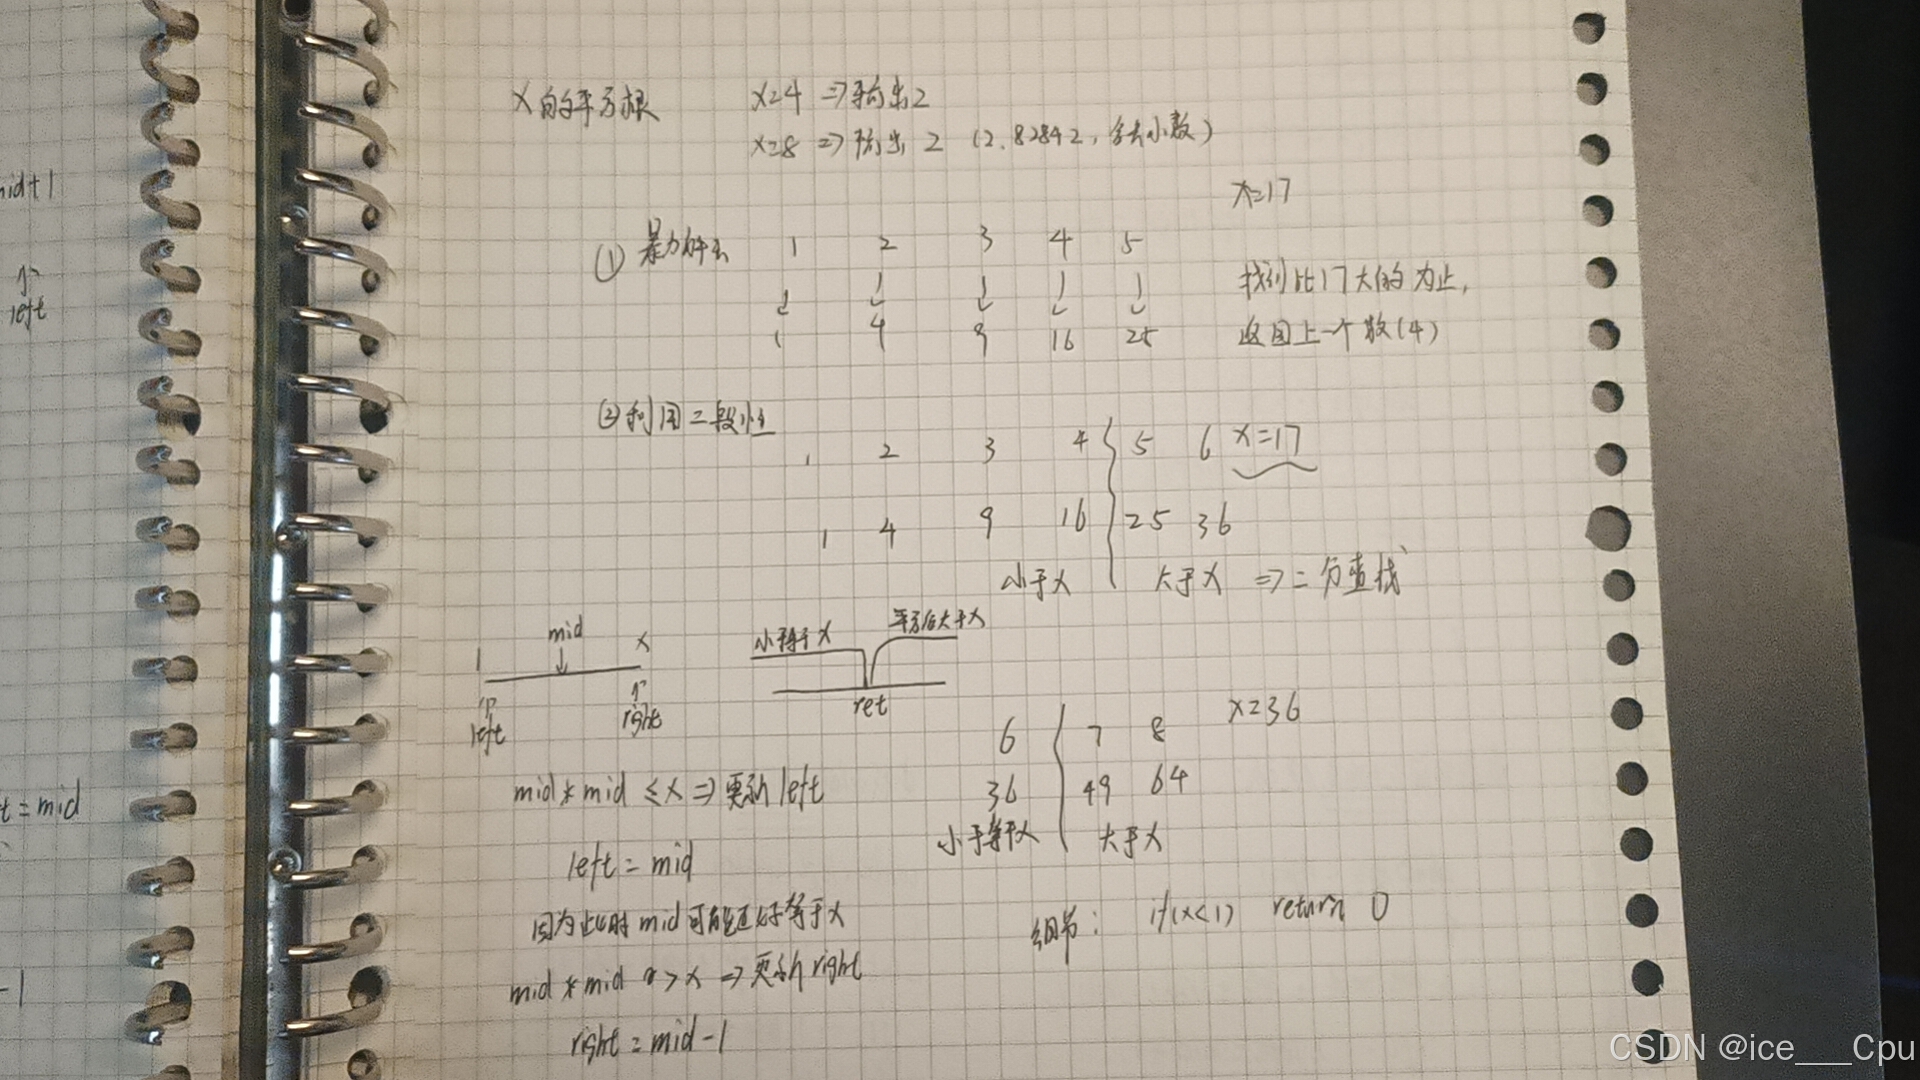 mid+1
left
t=mid
-1
x的平方根 x=4 => 输出2
x=8 => 输出 2 (2.82842, 舍去小数)
x=17
① 暴力解法 1 2 3 4 5
↓ ↓ ↓ ↓ ↓ 找到比17大的为止,
1 4 9 16 25 返回上一个数(4)
②利用二段性
1 2 3 4 5 6 x=17
1 4 9 16 25 36
小于x 大于x => 二分查找
mid
1 x
left right
小于等于x 平方后大于x
ret
6 7 8 x=36
36 49 64
小于等于x 大于x
mid*mid ≤x => 更新left
left=mid
因为此时mid可能正好等于x
mid*mid > x => 更新right
right=mid-1
细节: if(x<1) return 0
CSDN @ice___Cpu